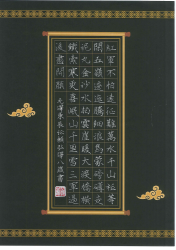 紅軍不怕遠征難萬水千山祇等
閒五嶺逶迤騰細浪烏蒙磅礴走
泥丸金沙水拍雲崖暖大渡橋橫
鐵索寒更喜岷山千里雪三軍過
後盡開顏
毛澤東